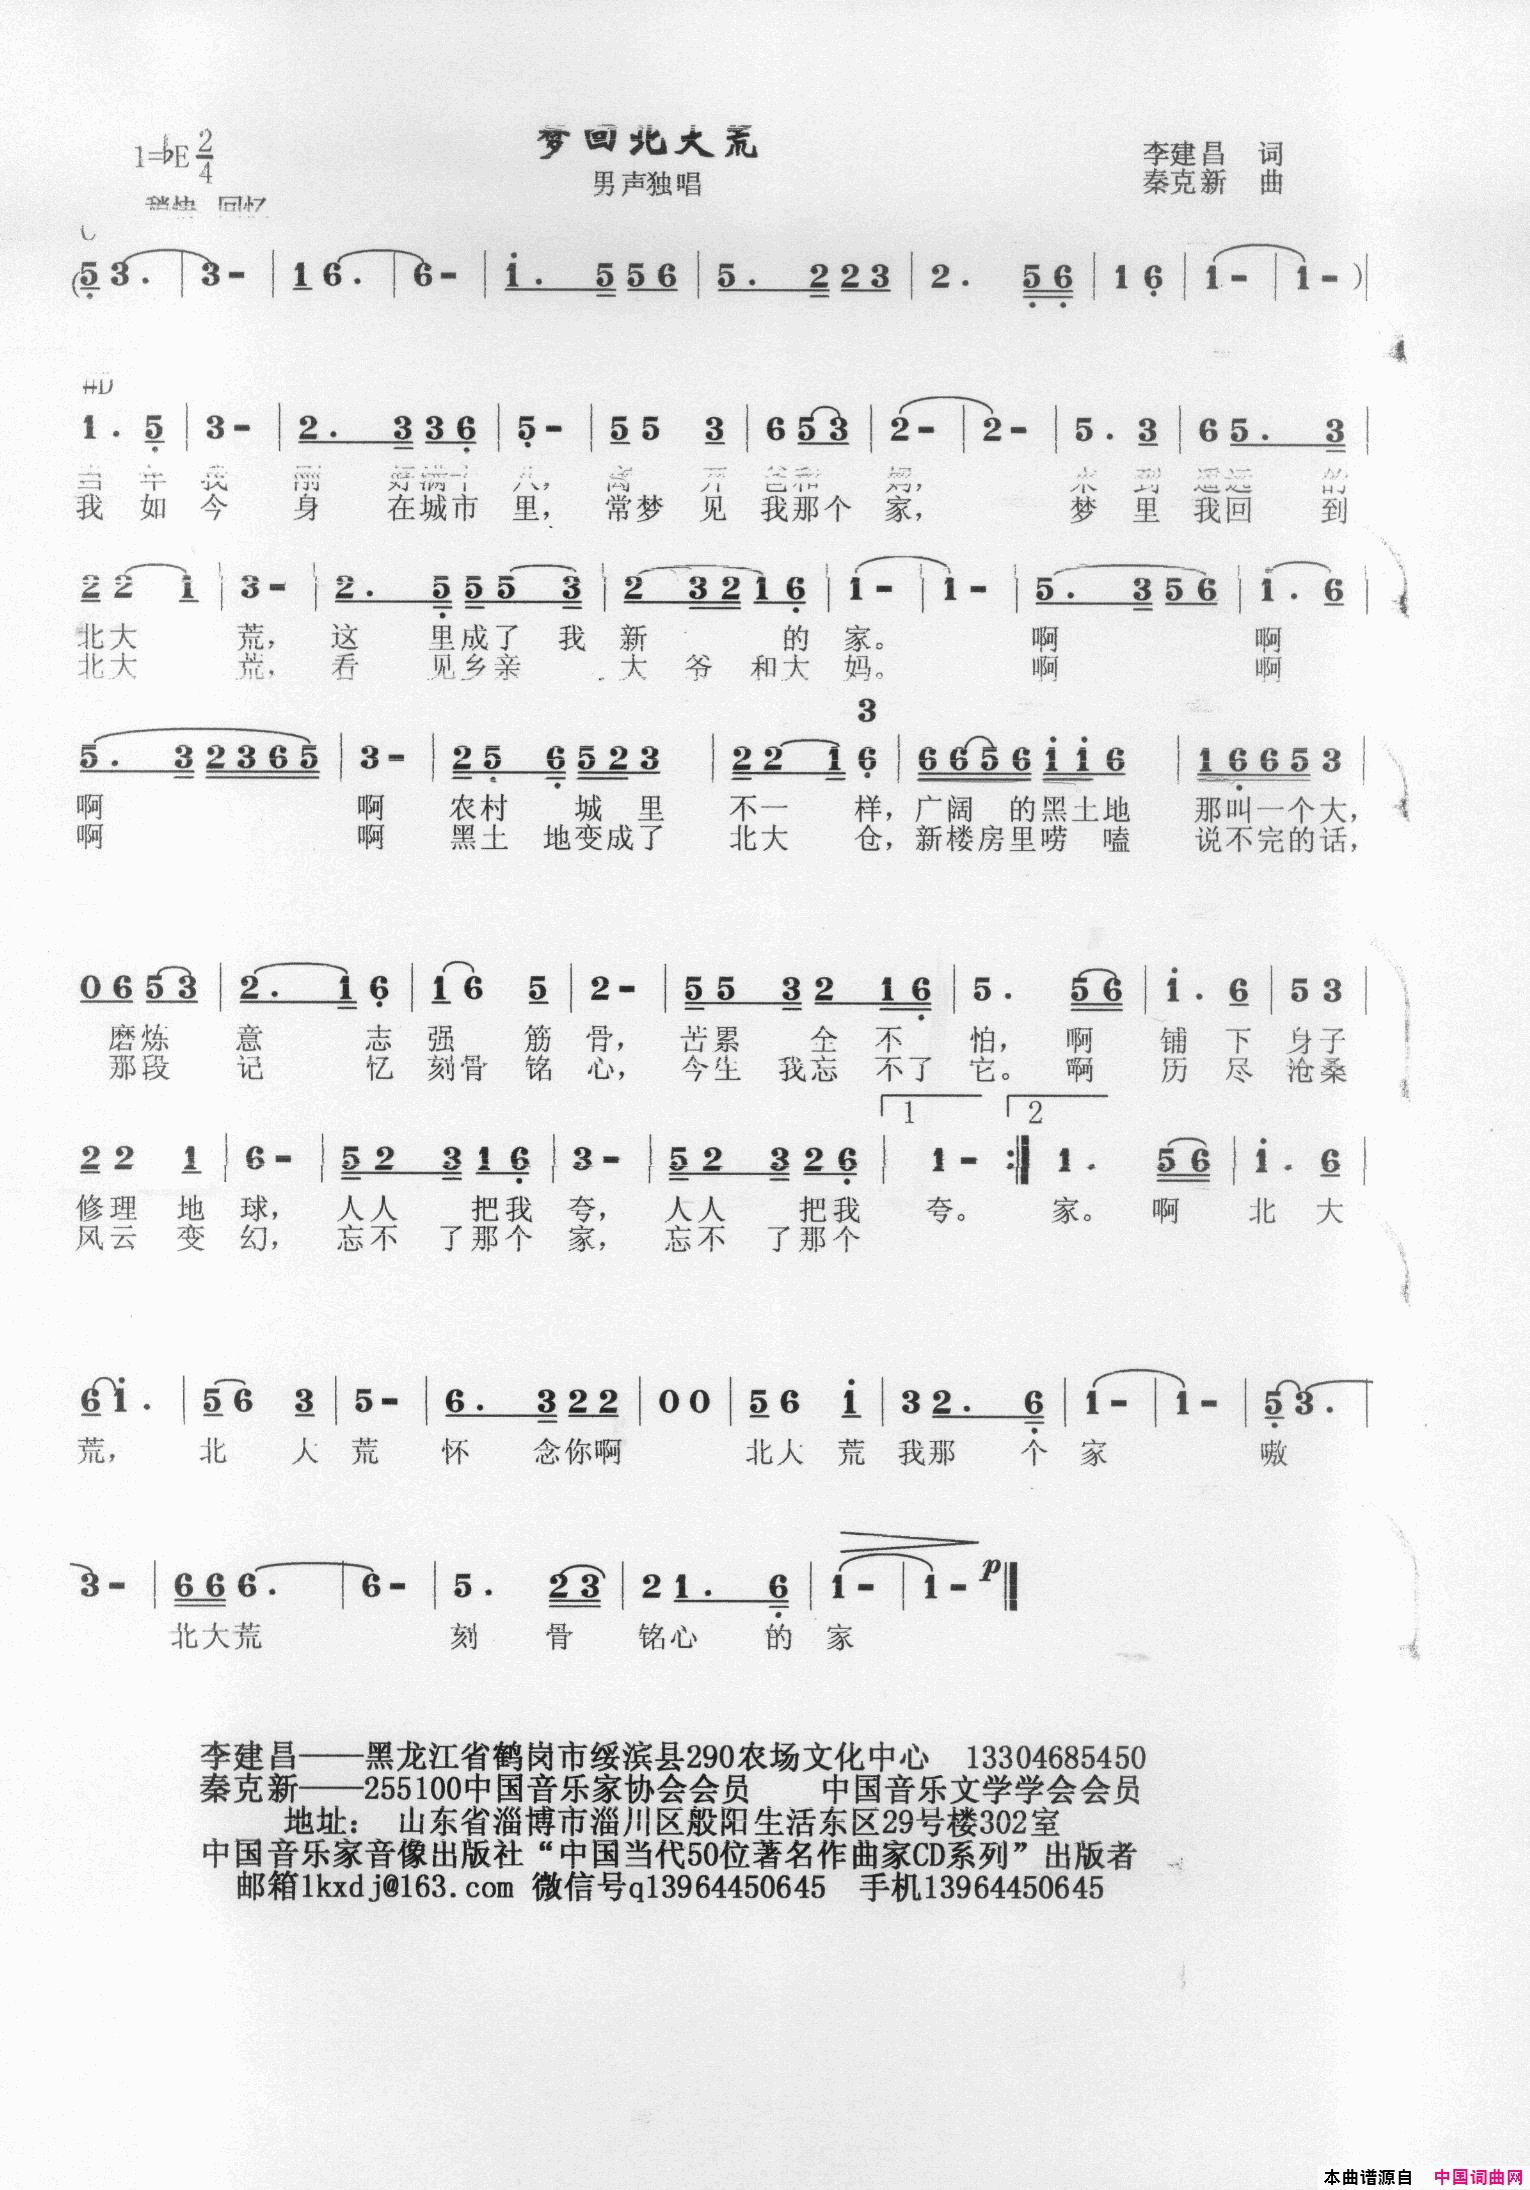 梦回北大荒
1=♭E 2/4
李建昌 词
男声独唱
秦克新 曲
稍快 回忆
C
(5 3. | 3- | 1 6. | 6- | i. 5 5 6 | 5. 2 2 3 | 2. 5 6 | 1 6 | 1- | 1- )|
#D
1. 5 | 3- | 2. 3 3 6 | 5- | 5 5 3 | 6 5 3 | 2- | 2- | 5. 3 | 6 5. 3 |
当 年 我 刚 好满十 八， 离 开 爸和 妈， 来 到 遥远 的
我 如 今 身 在城市 里， 常梦 见 我那个 家， 梦 里 我回 到
2 2 1 | 3- | 2. 5 5 5 3 | 2 3 2 1 6 | 1- | 1- | 5. 3 5 6 | i. 6 |
北大 荒， 这 里成了 我 新 的 家。 啊 啊
北大 荒， 看 见乡亲 大 爷 和大 妈。 啊 啊
3
5. 3 2 3 6 5 | 3- | 2 5 6 5 2 3 | 2 2 1 6 | 6 6 5 6 i i 6 | 1 6 6 5 3 |
啊 啊 农村 城 里 不一 样，广阔 的黑土地 那叫一个大，
啊 啊 黑土 地变成了 北大 仓，新楼房里唠 嗑 说不完的话，
0 6 5 3 | 2. 1 6 | 1 6 5 | 2- | 5 5 3 2 1 6 | 5. 5 6 | i. 6 | 5 3 |
磨炼 意 志 强 筋 骨， 苦累 全 不 怕， 啊 铺 下 身子
那段 记 忆 刻骨 铭 心， 今生 我忘 不了 它。 啊 历 尽 沧桑
1 2
2 2 1 | 6- | 5 2 3 1 6 | 3- | 5 2 3 2 6 | 1- :| 1. 5 6 | i. 6 |
修理 地 球， 人人 把我 夸， 人人 把我 夸。 家。 啊 北 大
风云 变 幻， 忘不 了那个 家， 忘不 了那个
6 i. | 5 6 3 | 5- | 6. 3 2 2 | 0 0 | 5 6 i | 3 2. 6 | 1- | 1- | 5 3. |
荒， 北 大 荒 怀 念你啊 北大 荒 我那 个 家 嗷
3- | 6 6 6. | 6- | 5. 2 3 | 2 1. 6 | 1- | 1- p ‖
北大荒 刻 骨 铭心 的 家
李建昌——黑龙江省鹤岗市绥滨县290农场文化中心 13304685450
秦克新——255100中国音乐家协会会员 中国音乐文学学会会员
地址： 山东省淄博市淄川区般阳生活东区29号楼302室
中国音乐家音像出版社“中国当代50位著名作曲家CD系列”出版者
邮箱lkxdj@163.com 微信号q13964450645 手机13964450645
本曲谱源自 中国词曲网